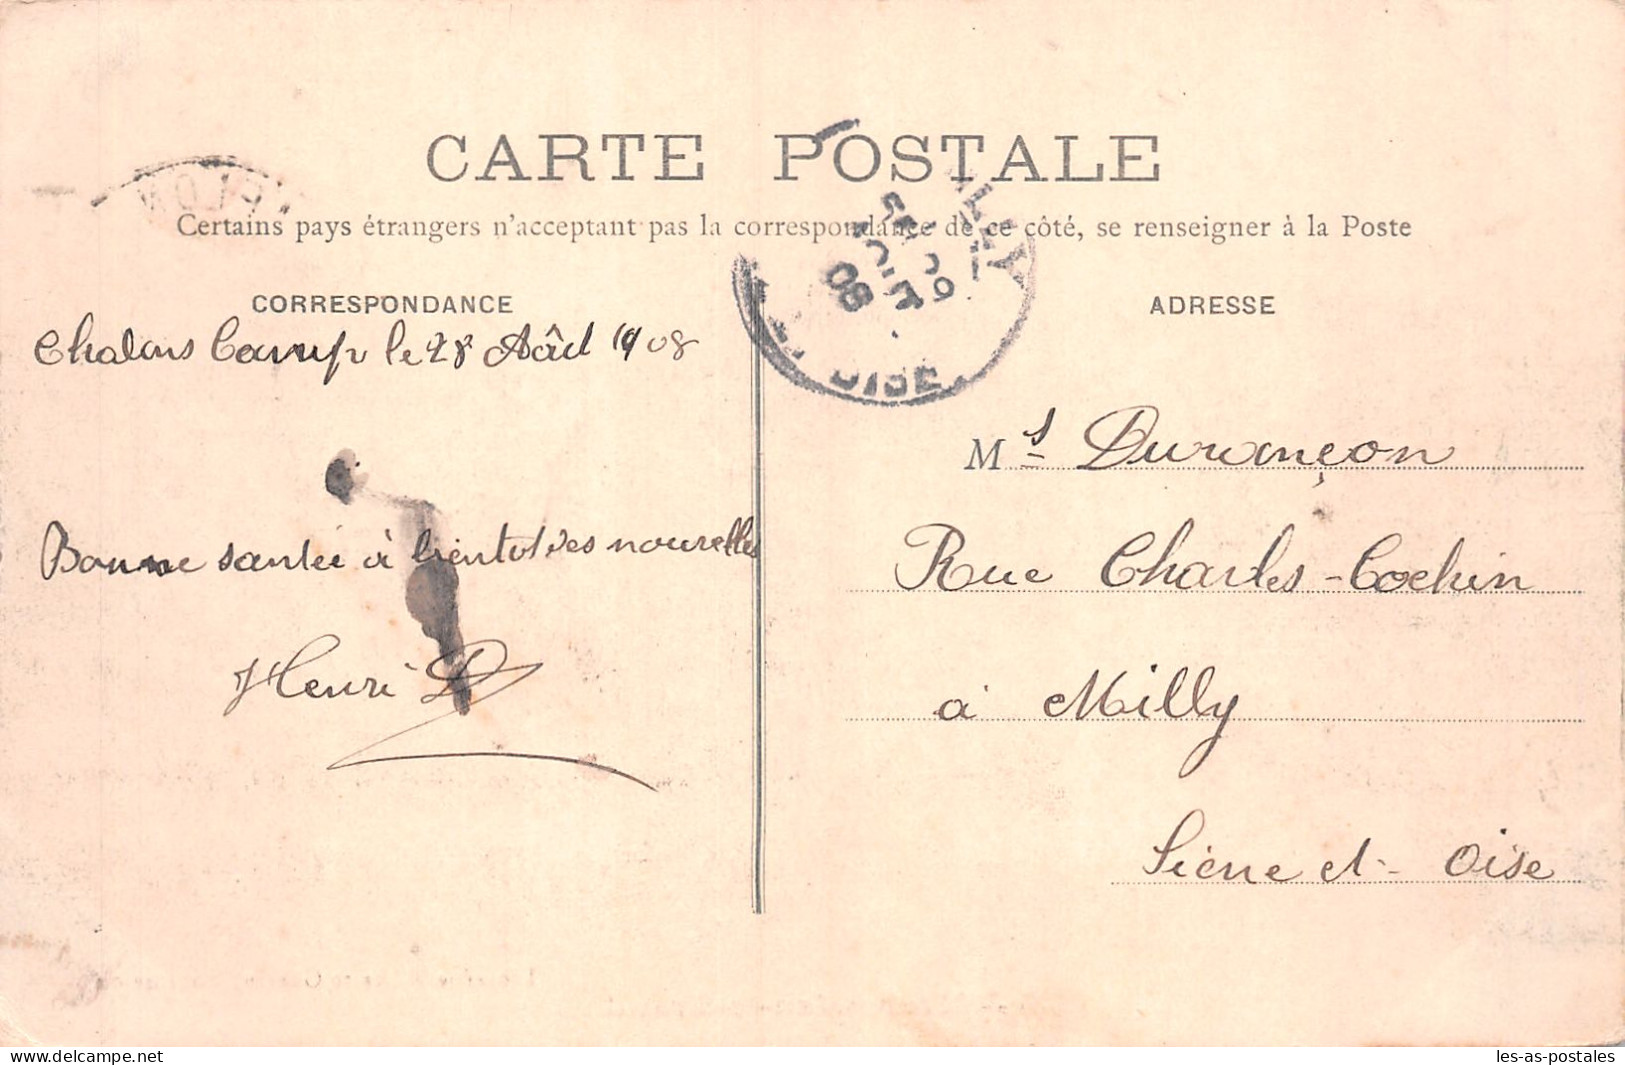 CARTE POSTALE
Certains pays étrangers n'acceptant pas la correspondance de ce côté, se renseigner à la Poste
CORRESPONDANCE
ADRESSE
Chalons Camp le 28 Aôut 1908
Bonne santée à bientot des nouvelles
Henri D
MILLY
OISE
08
Ms Durançon
Rue Charles-Cochin
à Milly
Siene et-Oise
delcampe.net
les-as-postales